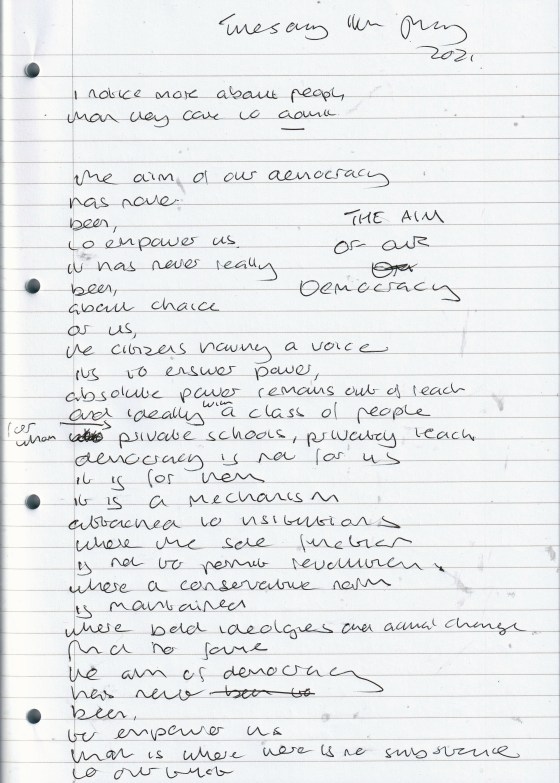 Tuesday 11th May
2021.
I notice more about people,
than they care to admit
the aim of our democracy
has never
been,
to empower us.
it has never really
been,
about choice
or us,
the citizens having a voice
its to ensure power,
absolute power remains out of reach
and ideally with a class of people
for whom private schools, privately teach
democracy is not for us
it is for them
it is a mechanism
attached to institutions
where the sole function
is not to permit revolution.
where a conservative norm
is maintained
where bold ideologies and actual change
find no
the aim of democracy
has never been to
been,
to empower us
that is where there is no substance
to our
THE AIM
OF OUR
DEMOCRACY